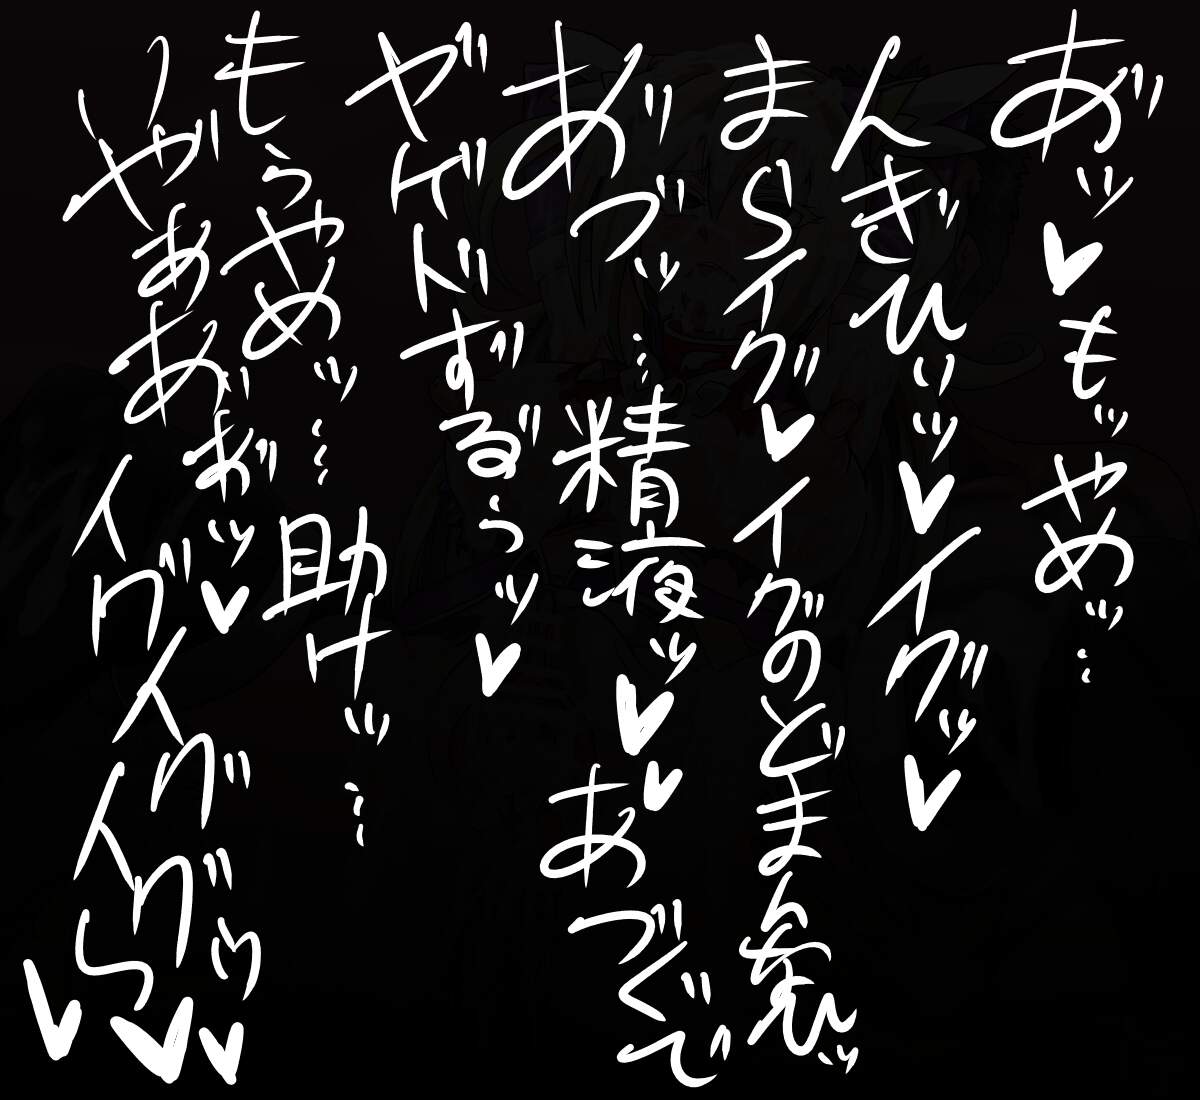 あ゛ッ♥もッやめッ…
んぎひぃッッ♥イグッ♥
まらイグ♥イグのどまんぢひッ
お゛づッ…精液ッ♥♥あづぐで
ヤゲドずるぅッ♥
もうやめッ…助けッ…
いやぁあお゛ッ♥
イグイグイグゥ